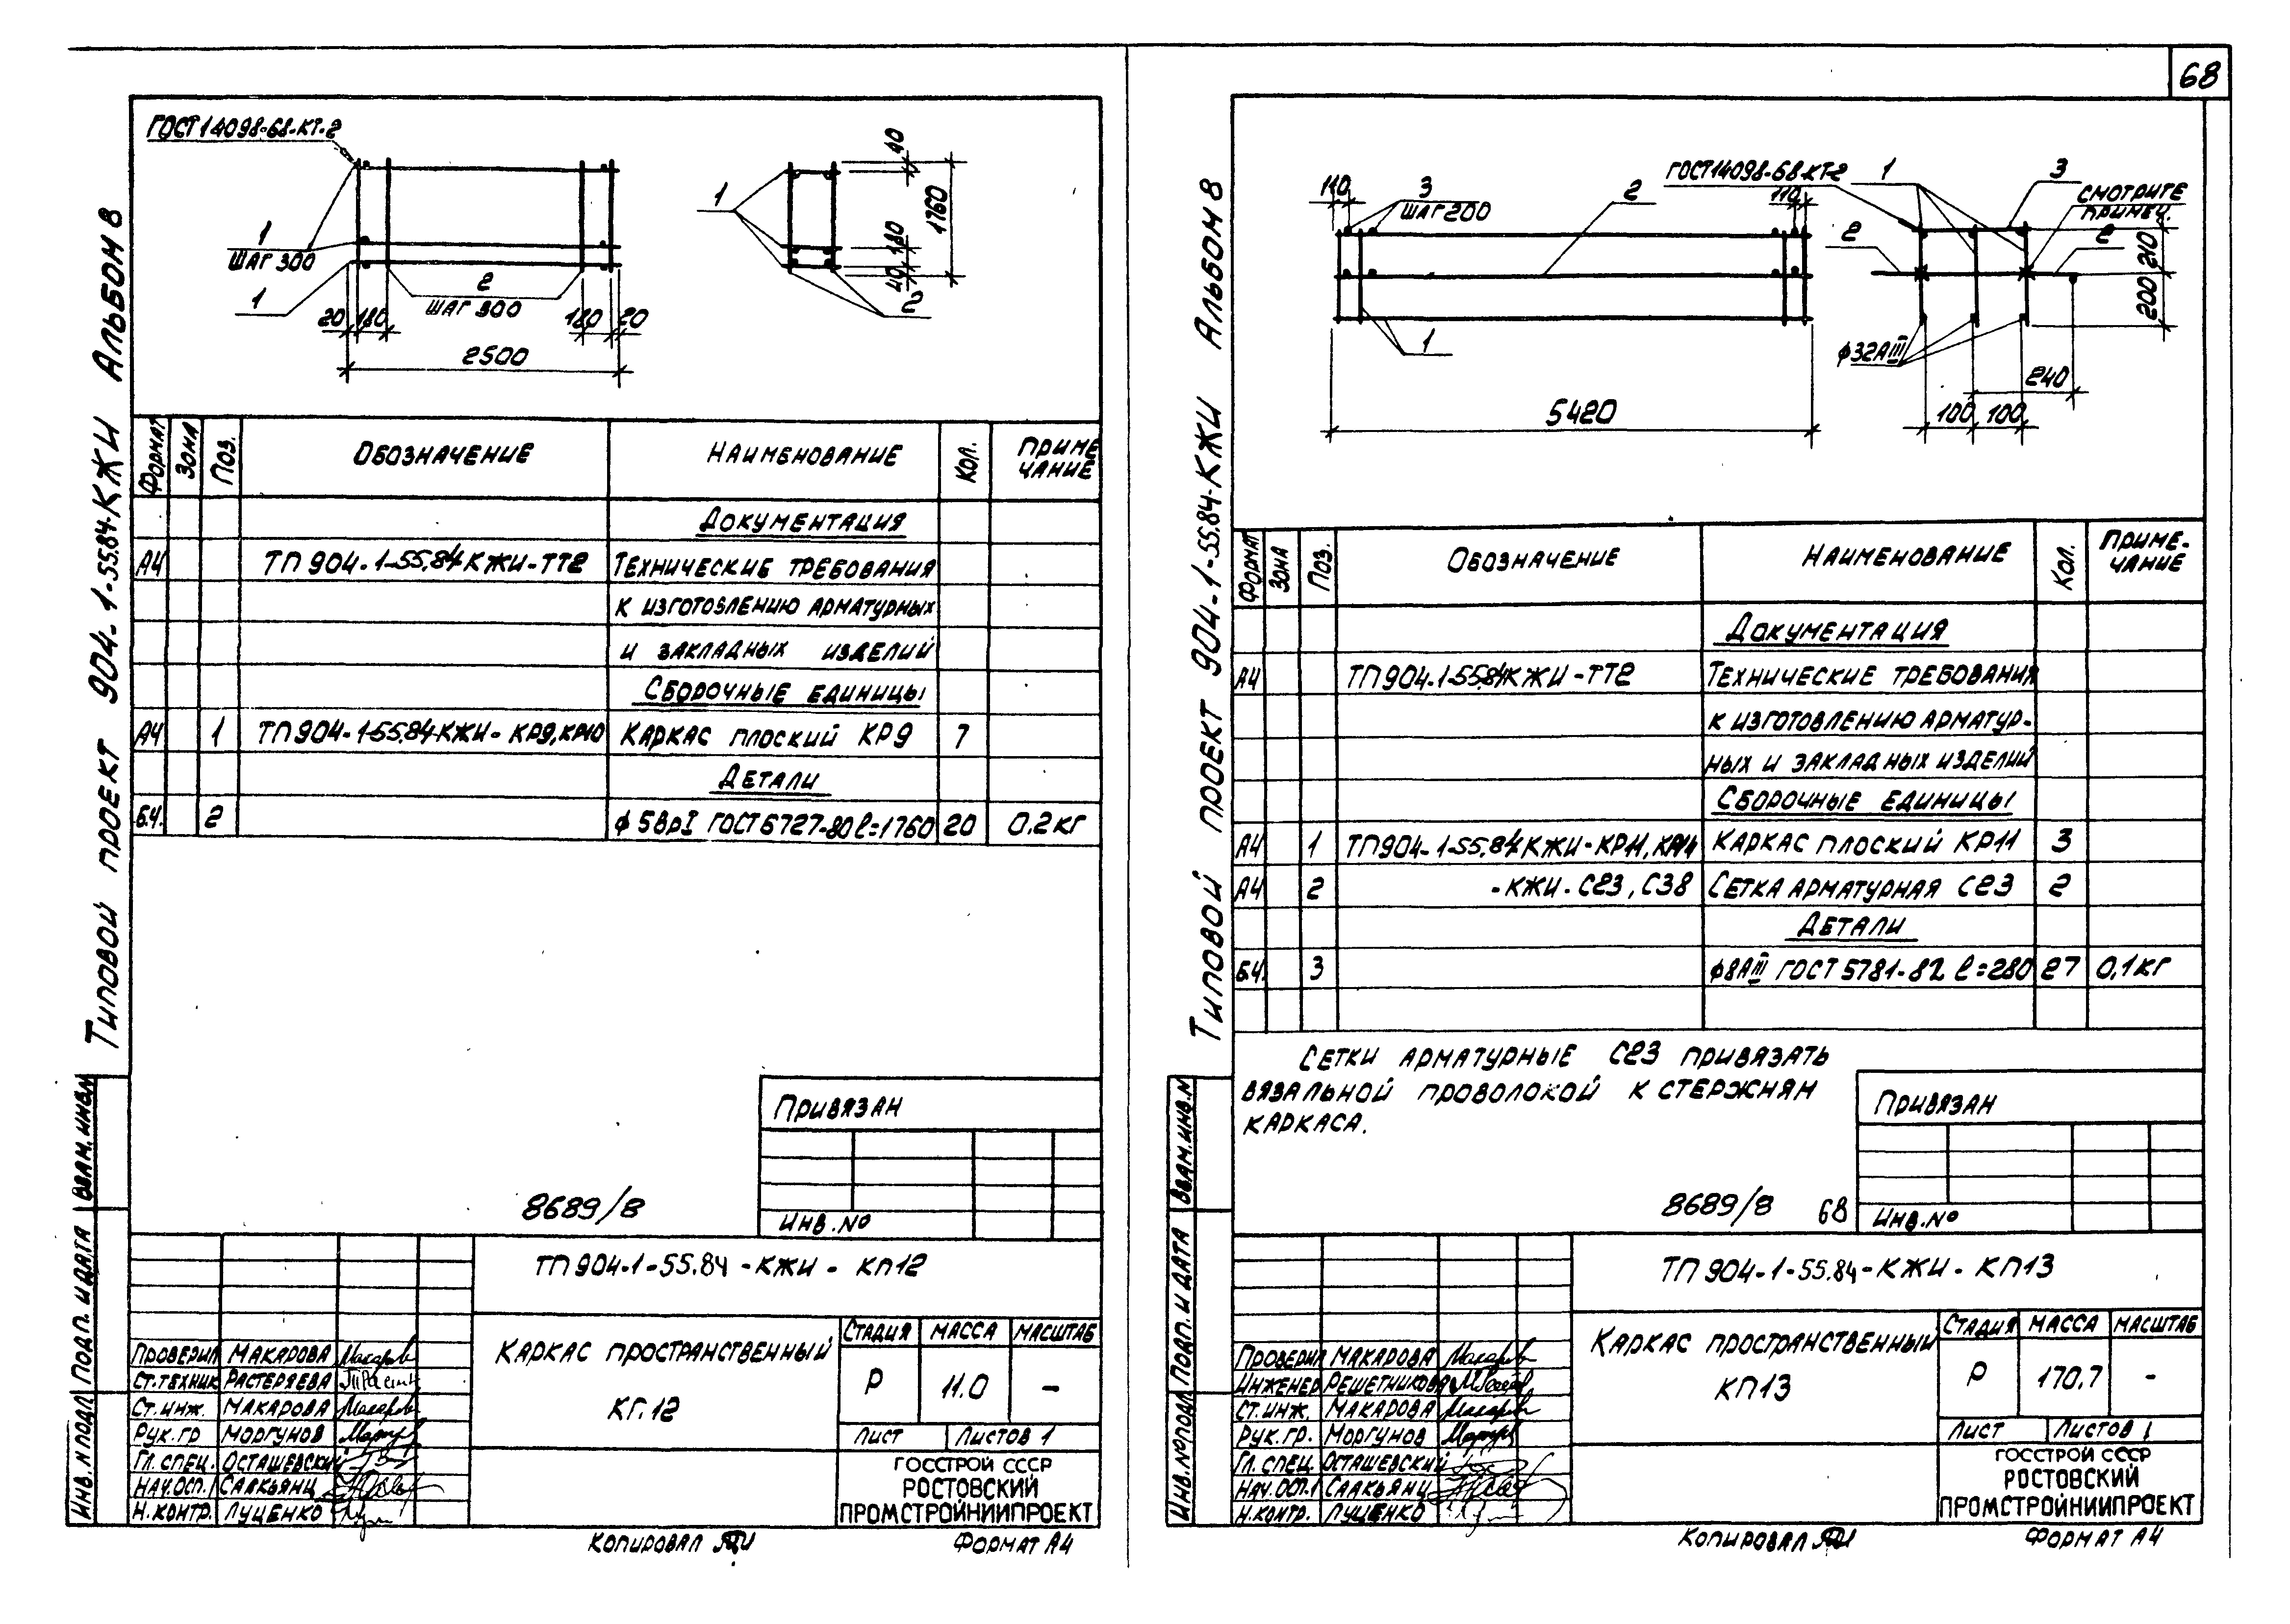 68
Типовой проект 904-1-55.84-КЖИ Альбом 8
ГОСТ 14098-68-КТ-2
1
ШАГ 300
1
2
ШАГ 300
20 180 180 20
2500
1
2
40
180
40
1760
Формат Зона Поз. Обозначение Наименование Кол. Приме
чание
Документация
А4 ТП 904-1-55.84 КЖИ-ТТ2 Технические требования
к изготовлению арматурных
и закладных изделий
Сборочные единицы
А4 1 ТП 904-1-55.84-КЖИ-КР9,КР10 Каркас плоский КР9 7
Детали
Б.Ч. 2 ф5ВрI ГОСТ 6727-80 l=1760 20 0.2кг
Привязан
Инв.№
8689/8
ТП 904-1-55.84-КЖИ-КП12
Каркас пространственный
КП12
Стадия Масса Масштаб
Р 11.0 -
Лист Листов 1
Проверил Макарова
Ст.техник Растеряева
Ст.инж. Макарова
Рук.гр Моргунов
Гл.спец. Осташевский
Нач.осп.1 Саакьянц
Н.контр. Луценко
ГОССТРОЙ СССР
РОСТОВСКИЙ
ПРОМСТРОЙНИИПРОЕКТ
Инв.№подл Подп. и дата Взам.инв.№
Копировал
Формат А4
Типовой проект 904-1-55.84-КЖИ Альбом 8
110 3
ШАГ 200
2
110
1
5420
ГОСТ 14098-68-КТ-2
1
3
СМОТРИТЕ
ПРИМЕЧ.
2
2
ф32АIII
210
200
240
100 100
Формат Зона Поз. Обозначение Наименование Кол. Приме-
чание
Документация
А4 ТП 904-1-55.84 КЖИ-ТТ2 Технические требования
к изготовлению арматур-
ных и закладных изделий
Сборочные единицы
А4 1 ТП 904-1-55.84 КЖИ-КР11,КР14 Каркас плоский КР11 3
А4 2 -КЖИ-С23,С38 Сетка арматурная С23 2
Детали
Б.Ч. 3 ф8АIII ГОСТ 5781-82 l=280 27 0,1кг
Сетки арматурные С23 привязать
вязальной проволокой к стержням
каркаса.
Привязан
Инв.№
8689/8 68
ТП 904-1-55.84-КЖИ-КП13
Каркас пространственный
КП13
Стадия Масса Масштаб
Р 170.7 -
Лист Листов 1
Проверил Макарова
Инженер Решетникова
Ст.инж. Макарова
Рук.гр. Моргунов
Гл.спец. Осташевский
Нач.осп.1 Саакьянц
Н.контр. Луценко
ГОССТРОЙ СССР
РОСТОВСКИЙ
ПРОМСТРОЙНИИПРОЕКТ
Инв.№подл Подп. и дата Взам.инв.№
Копировал
Формат А4